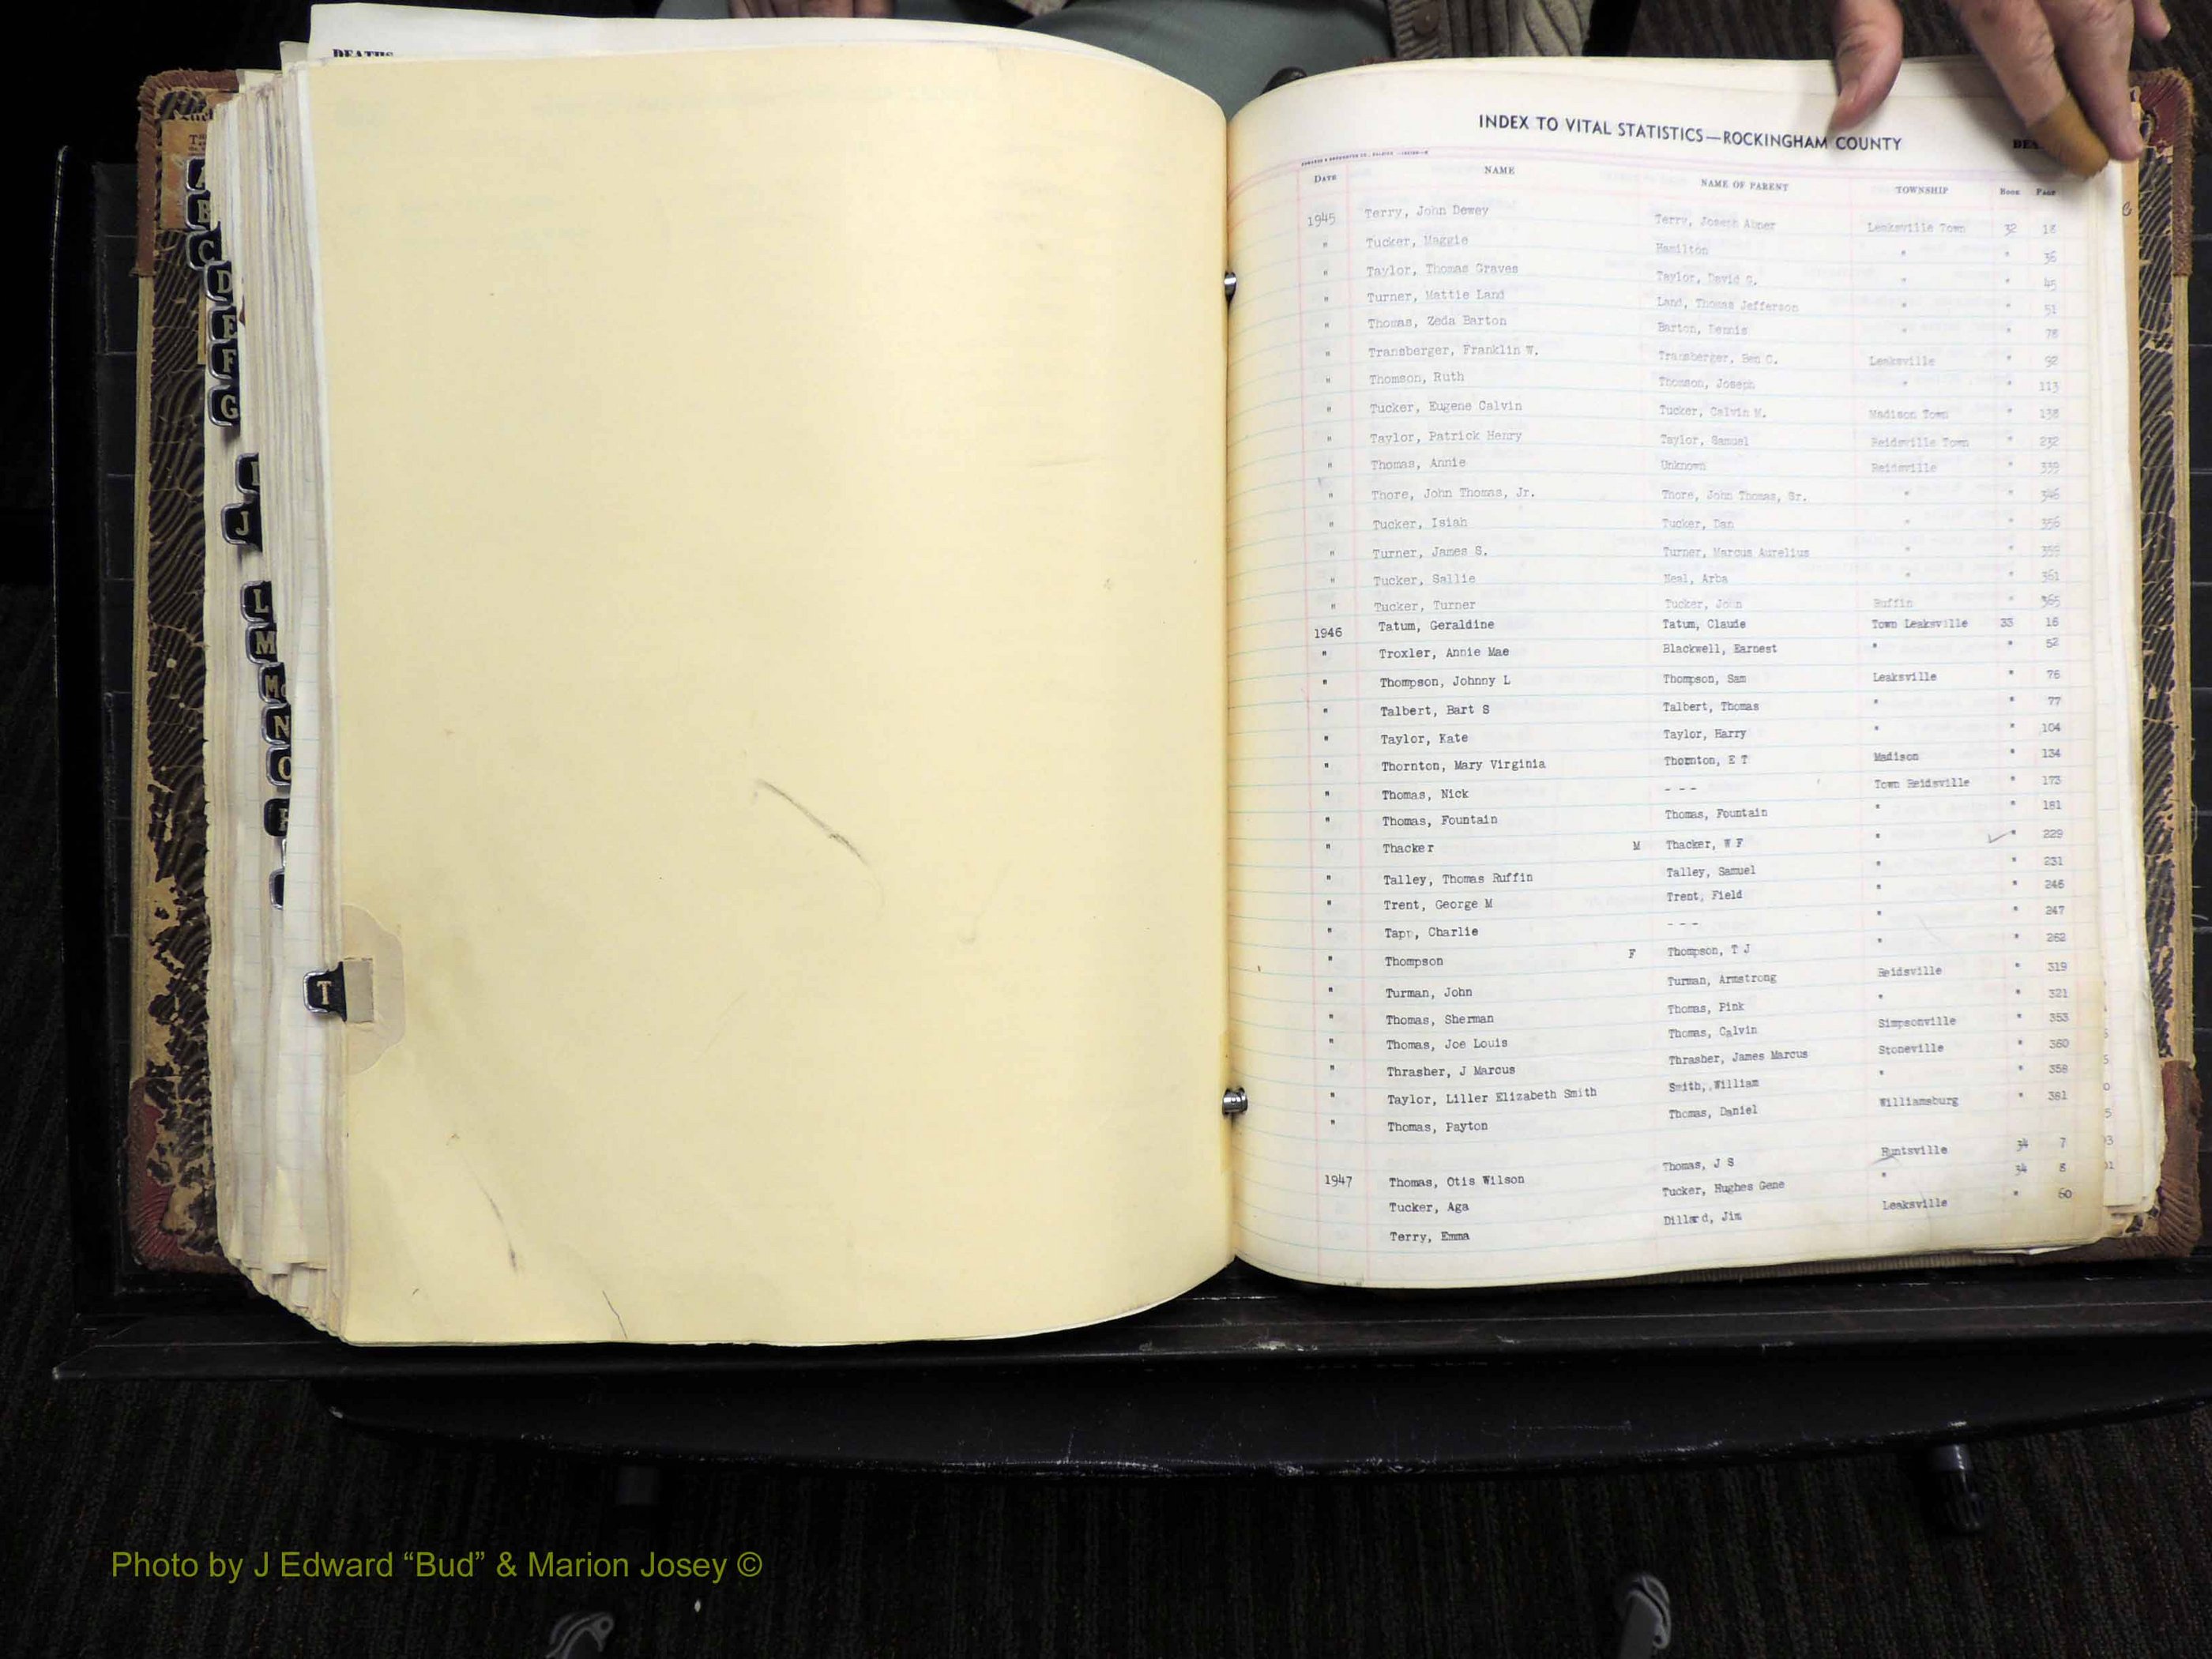 DEATHS
A
B
C
D
E
F
G
I
J
L
M
Mc
N
O
T
INDEX TO VITAL STATISTICS—ROCKINGHAM COUNTY
DATE NAME NAME OF PARENT TOWNSHIP BOOK PAGE
1945 Terry, John Dewey Terry, Joseph Abner Leaksville Town 32 18
" Tucker, Maggie Hamilton " " 36
" Taylor, Thomas Graves Taylor, David G. " " 45
" Turner, Mattie Land Land, Thomas Jefferson " " 51
" Thomas, Zeda Barton Barton, Dennis " " 78
" Transberger, Franklin W. Transberger, Ben C. Leaksville " 92
" Thomson, Ruth Thomson, Joseph " " 113
" Tucker, Eugene Calvin Tucker, Calvin M. Madison Town " 138
" Taylor, Patrick Henry Taylor, Samuel Reidsville Town " 232
" Thomas, Annie Unknown Reidsville " 339
" Thore, John Thomas, Jr. Thore, John Thomas, Sr. " " 346
" Tucker, Isiah Tucker, Dan " " 356
" Turner, James S. Turner, Marcus Aurelius " " 359
" Tucker, Sallie Neal, Arba " " 361
" Tucker, Turner Tucker, John Ruffin " 365
1946 Tatum, Geraldine Tatum, Claude Town Leaksville 33 16
" Troxler, Annie Mae Blackwell, Earnest " " 52
" Thompson, Johnny L Thompson, Sam Leaksville " 76
" Talbert, Bart S Talbert, Thomas " " 77
" Taylor, Kate Taylor, Harry " " 104
" Thornton, Mary Virginia Thornton, E T Madison " 134
" Thomas, Nick - - - Town Reidsville " 173
" Thomas, Fountain Thomas, Fountain " " 181
" Thacker M Thacker, W F " " 229
" Talley, Thomas Ruffin Talley, Samuel " " 231
" Trent, George M Trent, Field " " 246
" Tapp, Charlie - - - " " 247
" Thompson F Thompson, T J " " 262
" Turman, John Turman, Armstrong Reidsville " 319
" Thomas, Sherman Thomas, Pink " " 321
" Thomas, Joe Louis Thomas, Calvin Simpsonville " 353
" Thrasher, J Marcus Thrasher, James Marcus Stoneville " 360
" Taylor, Liller Elizabeth Smith Smith, William " " 358
" Thomas, Payton Thomas, Daniel Williamsburg " 381
1947 Thomas, Otis Wilson Thomas, J S Huntsville 34 7
Tucker, Aga Tucker, Hughes Gene " 34 8
Terry, Emma Dillard, Jim Leaksville " 60
Photo by J Edward “Bud” & Marion Josey ©